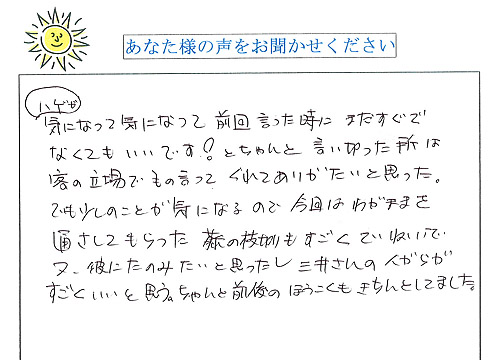 あなた様の声をお聞かせください
ハゲが
気になって気になって前回言った時にまだすぐで
なくてもいいです!とちゃんと言い切った所は
客の立場でもの言ってくれてありがたいと思った。
でも少しのことが気になるので今回はわがままを
通させてもらった 松の枝切りもすごくていねいで
又、彼にたのみたいと思ったし三井さんの人がらが
すごくいいと思う。ちゃんと前後のほうこくもきちんとしてました。